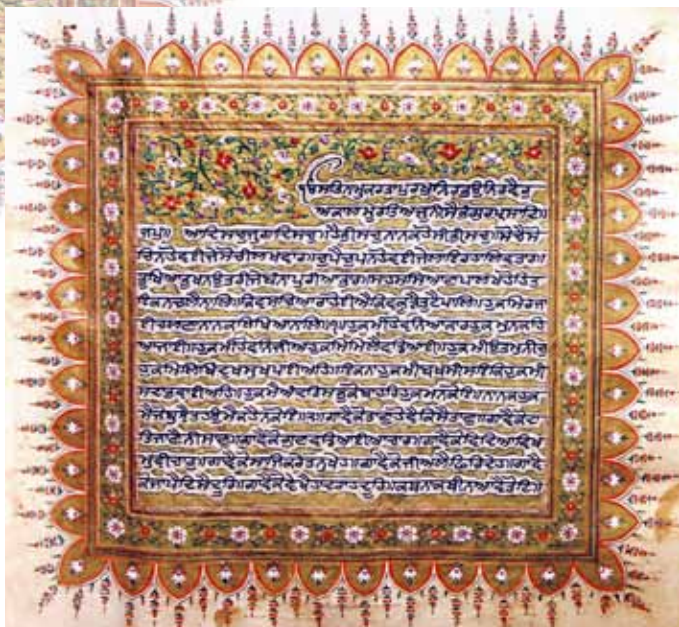 ੴਸਤਿਨਾਮੁਕਰਤਾਪੁਰਖੁਨਿਰਭਉਨਿਰਵੈਰੁ
ਅਕਾਲਮੂਰਤਿਅਜੂਨੀਸੈਭੰਗੁਰਪ੍ਰਸਾਦਿ॥
ਜਪੁ॥ ਆਦਿਸਚੁਜੁਗਾਦਿਸਚੁ॥ਹੈਭੀਸਚੁਨਾਨਕਹੋਸੀਭੀਸਚੁ॥੧॥ਸੋਚੈਸੋ
ਚਿਨਹੋਵਈਜੇਸੋਚੀਲਖਵਾਰ॥ਚੁਪੈਚੁਪਨਹੋਵਈਜੇਲਾਇਰਹਾਲਿਵਤਾਰ॥
ਭੁਖਿਆਭੁਖਨਉਤਰੀਜੇਬੰਨਾਪੁਰੀਆਭਾਰ॥ਸਹਸਸਿਆਣਪਾਲਖਹੋਹਿਤ
ਇਕਨਚਲੈਨਾਲਿ॥ਕਿਵਸਚਿਆਰਾਹੋਈਐਕਿਵਕੂੜੈਤੁਟੈਪਾਲਿ॥ਹੁਕਮਿਰਜਾ
ਈਚਲਣਾਨਾਨਕਲਿਖਿਆਨਾਲਿ॥੧॥ਹੁਕਮੀਹੋਵਨਿਆਕਾਰਹੁਕਮੁਨਕਹਿ
ਆਜਾਈ॥ਹੁਕਮੀਹੋਵਨਿਜੀਅਹੁਕਮਿਮਿਲੈਵਡਿਆਈ॥ਹੁਕਮੀਉਤਮੁਨੀਚੁ
ਹੁਕਮਿਲਿਖਿਦੁਖਸੁਖਪਾਈਅਹਿ॥ਇਕਨਾਹੁਕਮੀਬਖਸੀਸਇਕਿਹੁਕਮੀ
ਸਦਾਭਵਾਈਅਹਿ॥ਹੁਕਮੈਅੰਦਰਿਸਭੁਕੋਬਾਹਰਿਹੁਕਮਨਕੋਇ॥ਨਾਨਕਹੁਕ
ਮੈਜੇਬੁਝੈਤਹਉਮੈਕਹੈਨਕੋਇ॥੨॥ਗਾਵੈਕੋਤਾਣੁਹੋਵੈਕਿਸੈਤਾਣੁ॥ਗਾਵੈਕੋਦਾ
ਤਿਜਾਣੈਨੀਸਾਣੁ॥ਗਾਵੈਕੋਗੁਣਵਡਿਆਈਆਚਾਰ॥ਗਾਵੈਕੋਵਿਦਿਆਵਿਖ
ਮੁਵੀਚਾਰੁ॥ਗਾਵੈਕੋਸਾਜਿਕਰੇਤਨੁਖੇਹ॥ਗਾਵੈਕੋਜੀਅਲੈਫਿਰਿਦੇਹ॥ਗਾਵੈ
ਕੋਜਾਪੈਦਿਸੈਦੂਰਿ॥ਗਾਵੈਕੋਵੇਖੈਹਾਦਰਾਹਦੂਰਿ॥ਕਥਨਾਕਥੀਨਆਵੈਤੋਟਿ॥